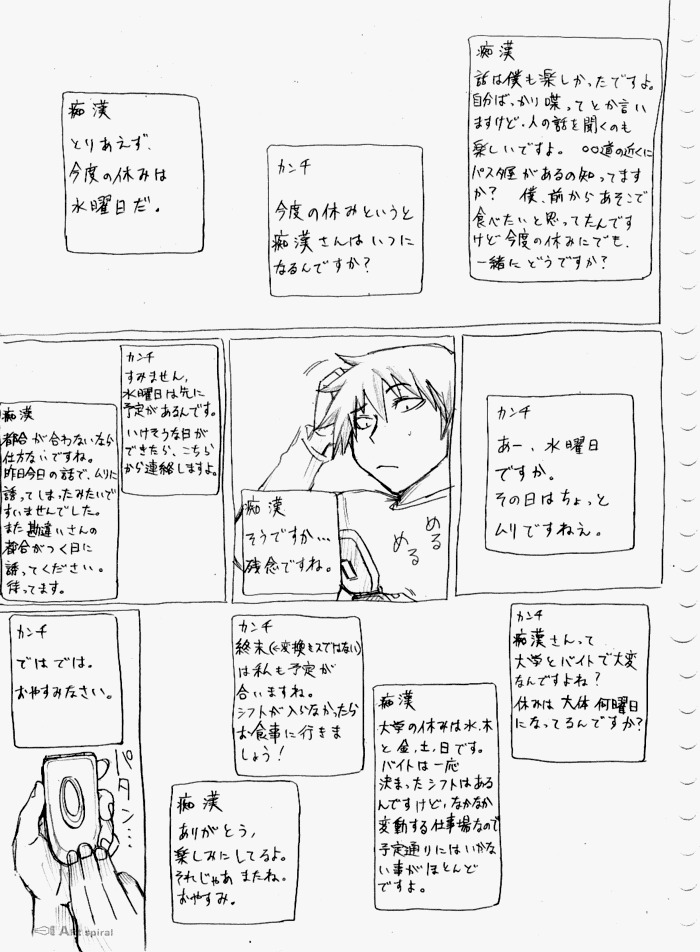 痴漢
話は僕も楽しかったですよ。
自分ばっかり喋ってとか言い
ますけど、人の話を聞くのも
楽しいですよ。 〇〇道の近くに
パスタ屋があるの知ってます
か? 僕、前からあそこで
食べたいと思ってたんです
けど今度の休みにでも、
一緒にどうですか?
カンチ
今度の休みというと
痴漢さんはいつに
なるんですか?
痴漢
とりあえず、
今度の休みは
水曜日だ。
カンチ
あー、水曜日
ですか。
その日はちょっと
ムリですねぇ。
痴漢
そうですか…
残念ですね。
める
める
カンチ
すみません、
水曜日は先に
予定があるんです。
いけそうな日が
できたら、こちら
から連絡しますよ。
痴漢
都合が合わないなら
仕方ないですね。
昨日今日の話で、ムリに
誘ってしまったみたいで
すいませんでした。
また勘違いさんの
都合がつく日に
誘ってください。
待ってます。
カンチ
痴漢さんって
大学とバイトで大変
なんですよね?
休みは大体何曜日
になってるんですか?
痴漢
大学の休みは水、木
と金、土、日です。
バイトは一応
決まったシフトはある
んですけど、なかなか
変動する仕事場なので
予定通りにはいかな
い事がほとんど
ですよ。
カンチ
終末(←変換ミスではない)
は私も予定が
合いますね。
シフトが入らなかったら
お食事に行きま
しょう!
痴漢
ありがとう、
楽しみにしてるよ。
それじゃあまたね。
おやすみ。
カンチ
ではでは。
おやすみなさい。
パタン…
Art spiral